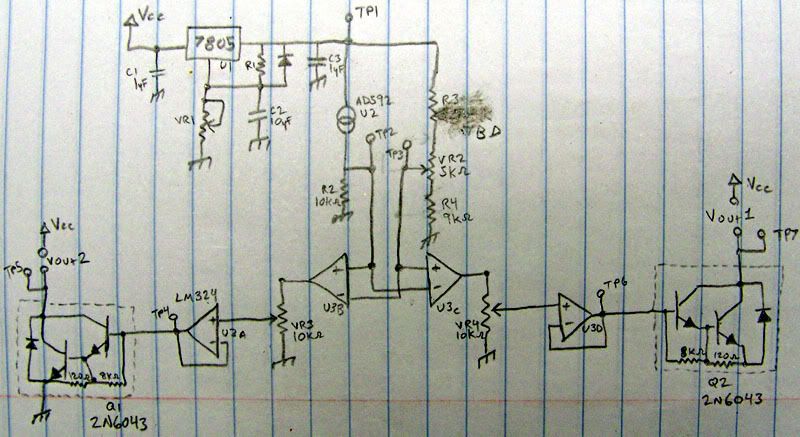 Vcc
TP1
7805
U1
C1
1µF
R1
C3
1µF
VR1
C2
10µF
AD592
U2
TP2
TP3
R3
TBD
VR2
5KΩ
R2
10KΩ
R4
9KΩ
Vcc
Vout1
TP7
Vcc
Vout2
TP5
TP4
LM324
U3A
VR3
10KΩ
U3B
U3C
VR4
10KΩ
TP6
U3D
120Ω
8KΩ
8KΩ
120Ω
Q1
2N6043
Q2
2N6043